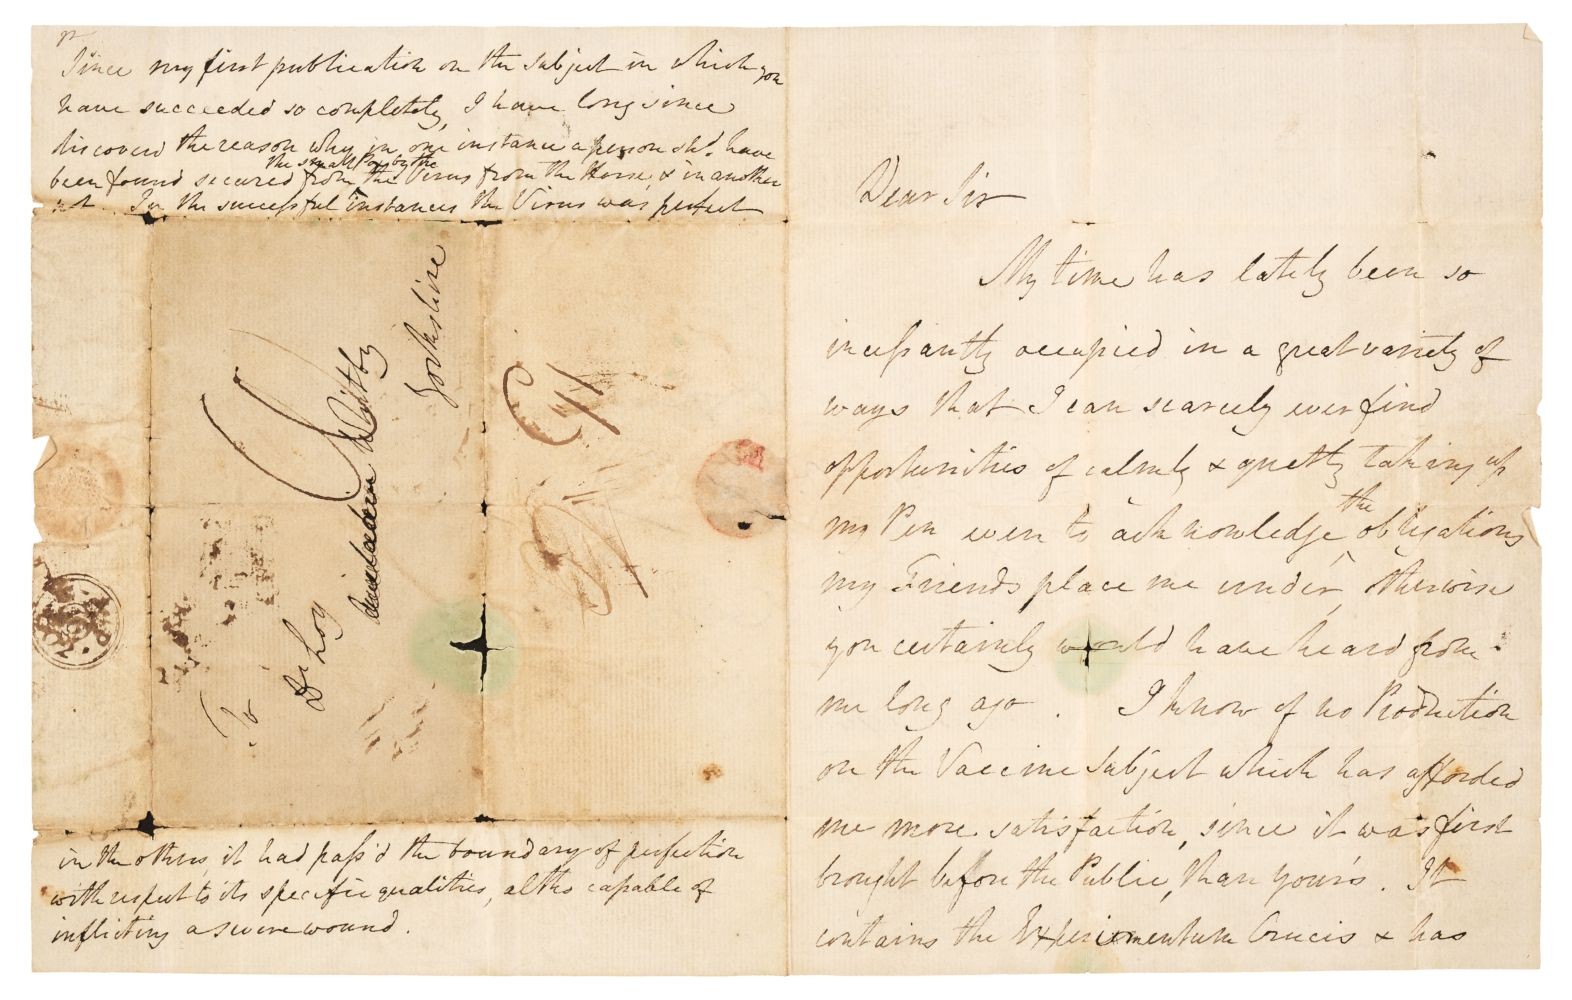 Since my first publication on the subject in which you
have succeeded so completely, I have long since
discoverd the reason why in one instance a person shd. have
been found secured from the small Pox by the Virus from the Horse, & in another
not. In the successful instances the Virus was perfect
To
Dr Loy
Whitby
Yorkshire
in the others, it had pass'd the boundary of perfection
with respect to its specific qualities, altho capable of
inflicting a severe wound.
Dear Sir
My time has lately been so
incessantly occupied in a great variety of
ways that I can scarcely ever find
opportunities of calmly & quietly taking up
my Pen even to acknowledge the obligations
my Friends place me under, otherwise
you certainly would have heard from
me long ago. I know of no Production
on the Vaccine Subject which has afforded
me more satisfaction, since it was first
brought before the Public, than yours. It
contains the Experimentum Crucis & has